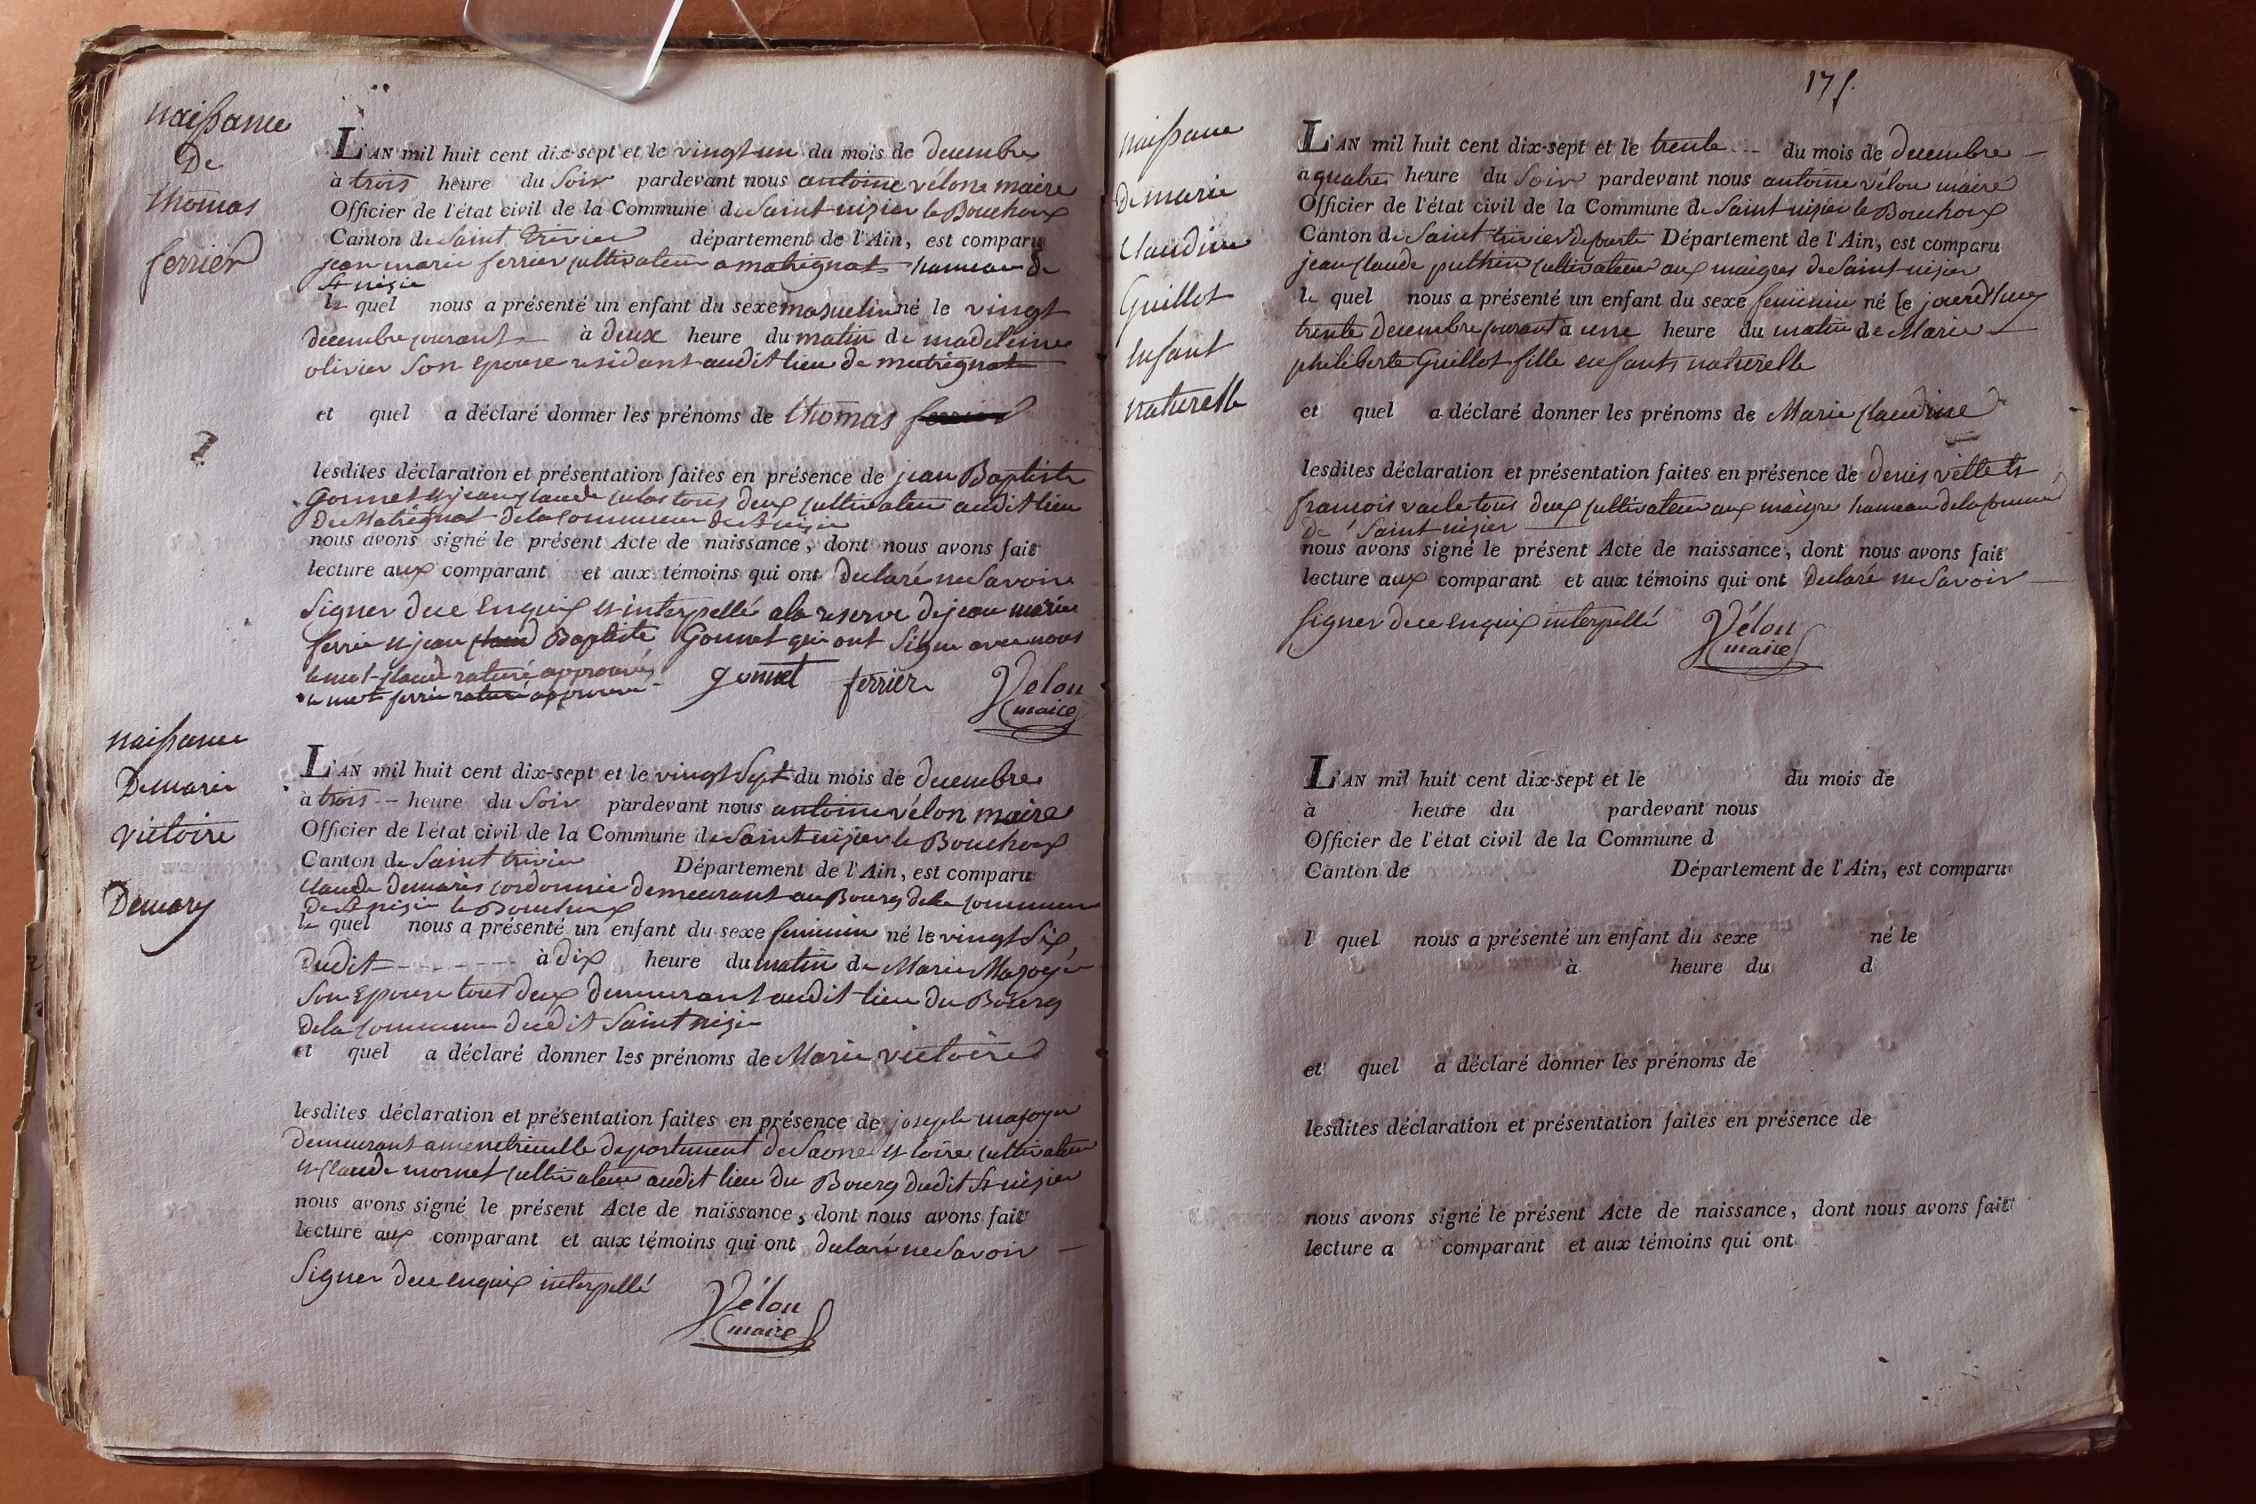 naissance
De
thomas
ferrier
L'AN mil huit cent dix-sept et le vingt un du mois de decembre
à trois heure du Soir pardevant nous antoine vélon maire
Officier de l'état civil de la Commune de Saint nizier le Bouchoux
Canton de Saint trivier département de l'Ain, est comparu
jean marie ferrier cultivateur a matrignat hameau de
St nizie
le quel nous a présenté un enfant du sexe masculin né le vingt
decembre courant à deux heure du matin de madelaine
olivier Son epouse residant audit lieu de matrignat
et quel a déclaré donner les prénoms de thomas ferrier
lesdites déclaration et présentation faites en présence de jean Baptiste
Gonnet et jean claude tous deux cultivateur audit lieu
De Matrignat de la Commune de St nizier
nous avons signé le présent Acte de naissance, dont nous avons fait
lecture aux comparant et aux témoins qui ont declaré ne Savoir
Signer de ce enquis et interpellé a la reserve de jean marie
ferrie et jean claud Baptiste Gonnet qui ont Signé avec nous
le mot claude raturé approuvé
le mot ferrie raturé approuvé
gonnet ferrier Vélon
maire
naissance
De marie
victoire
Demary
L'AN mil huit cent dix-sept et le vingt Sept du mois de decembre
à trois heure du Soir pardevant nous antoine vélon maire
Officier de l'état civil de la Commune de Saint nizier le Bouchoux
Canton de Saint trivier Département de l'Ain, est comparu
Claude Demaris cordonnie demeurant au Bourg de la commune
De St nizie le Bouchoux
le quel nous a présenté un enfant du sexe feminin né le vingt Six
dudit à dix heure du matin de Marie Mazoyé
Son Epouse tous deux demeurant audit lieu du Bourg
de la commune dudit Saint nizie
et quel a déclaré donner les prénoms de Marie victoire
lesdites déclaration et présentation faites en présence de joseph mazoyer
demeurant a menetreuille departement de Saone et loire cultivateur
et claude mornet cultivateur audit lieu du Bourg dudit St nizier
nous avons signé le présent Acte de naissance, dont nous avons fait
lecture aux comparant et aux témoins qui ont declaré ne Savoir
Signer de ce enquis interpellé
Vélon
maire
175.
naissance
De marie
Claudine
Guillot
enfant
naturelle
L'AN mil huit cent dix-sept et le trente du mois de decembre
a quatre heure du Soir pardevant nous antoine vélon maire
Officier de l'état civil de la Commune de Saint nizier le Bouchoux
Canton de Saint trivier de courte Département de l'Ain, est comparu
jean claude puthin cultivateur aux maigres de Saint nizier
le quel nous a présenté un enfant du sexe feminin né le jourdhuy
trente Decembre courant a une heure du matin de Marie
philiberte Guillot fille enfants naturelle
et quel a déclaré donner les prénoms de Marie claudine
lesdites déclaration et présentation faites en présence de denis villet et
francois vacle tous deux cultivateur aux maigre hameau de la commune
De Saint nizier
nous avons signé le présent Acte de naissance, dont nous avons fait
lecture aux comparant et aux témoins qui ont declaré ne Savoir
Signer de ce enquis interpellé
Vélon
maire
L'AN mil huit cent dix-sept et le du mois de
à heure du pardevant nous
Officier de l'état civil de la Commune d
Canton de Département de l'Ain, est comparu
l quel nous a présenté un enfant du sexe né le
à heure du d
et quel a déclaré donner les prénoms de
lesdites déclaration et présentation faites en présence de
nous avons signé le présent Acte de naissance, dont nous avons fait
lecture a comparant et aux témoins qui ont